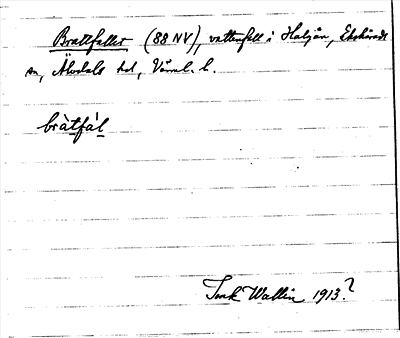 Brattfallet (88 NV), vattenfall i Haljån, Ekshärads
sn, Älvdals hd, Värml. l.
bràtfál
Wallin 1913?